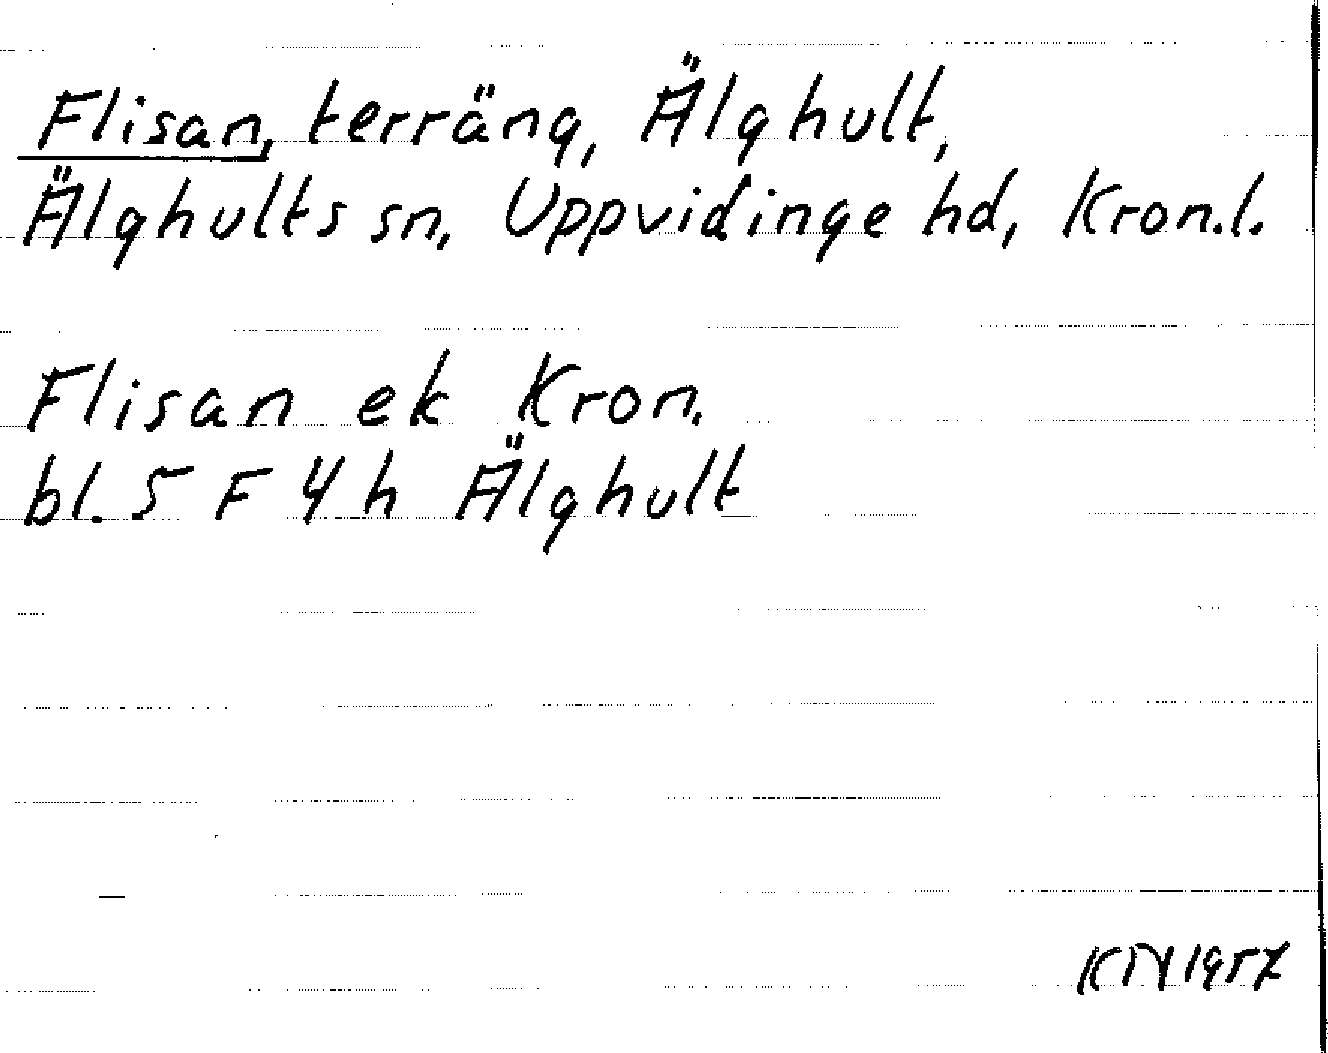 Flisan, terräng, Älghult,
Älghults sn, Uppvidinge hd, Kron.l.
Flisan ek Kron.
bl. 5 F 4 h Älghult
1957